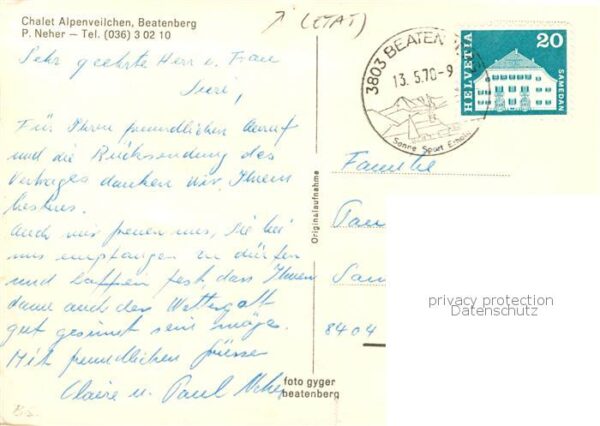 Chalet Alpenveilchen, Beatenberg
P. Neher – Tel. (036) 3 02 10
(ETAT)
Sehr geehrte Herr u. Frau
Für Ihren freundlichen Anruf
und die Rücksendung des
Vertrages danken wir Ihnen
bestens.
Auch wir freuen uns, Sie bei
uns empfangen zu dürfen
und hoffen fest, dass Ihnen
dann auch der Wettergott
gut gesinnt sein möge.
Mit freundlichen Grüssen
Claire u. Paul Neher
Originalaufnahme
foto gyger
beatenberg
3803 BEATEN
13.5.70-9
Sonne Sport
HELVETIA
20
SAMEDAN
Familie
8404
privacy protection
Datenschutz